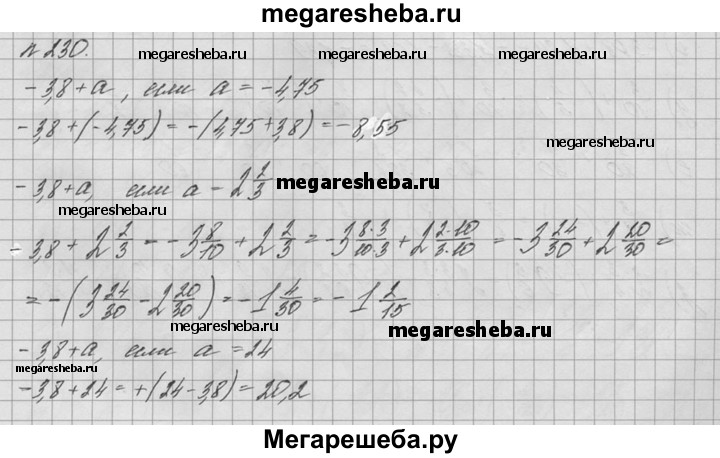 megaresheba.ru
№230.
megaresheba.ru megaresheba.ru
-3,8+a, если a=-4,75
-3,8+(-4,75)=-(4,75+3,8)=-8,55
-3,8+a, если a - 2 2/3
megaresheba.ru
megaresheba.ru
-3,8+2 2/3=-3 8/10+2 2/3=-3 8·3/10·3+2 2·10/3·10=-3 24/30+2 20/30=
=-(3 24/30-2 20/30)=-1 4/30=-1 2/15
megaresheba.ru megaresheba.ru
-3,8+a, если a=24
megaresheba.ru megaresheba.ru
-3,8+24=+(24-3,8)=20,2
Мегарешеба.ру